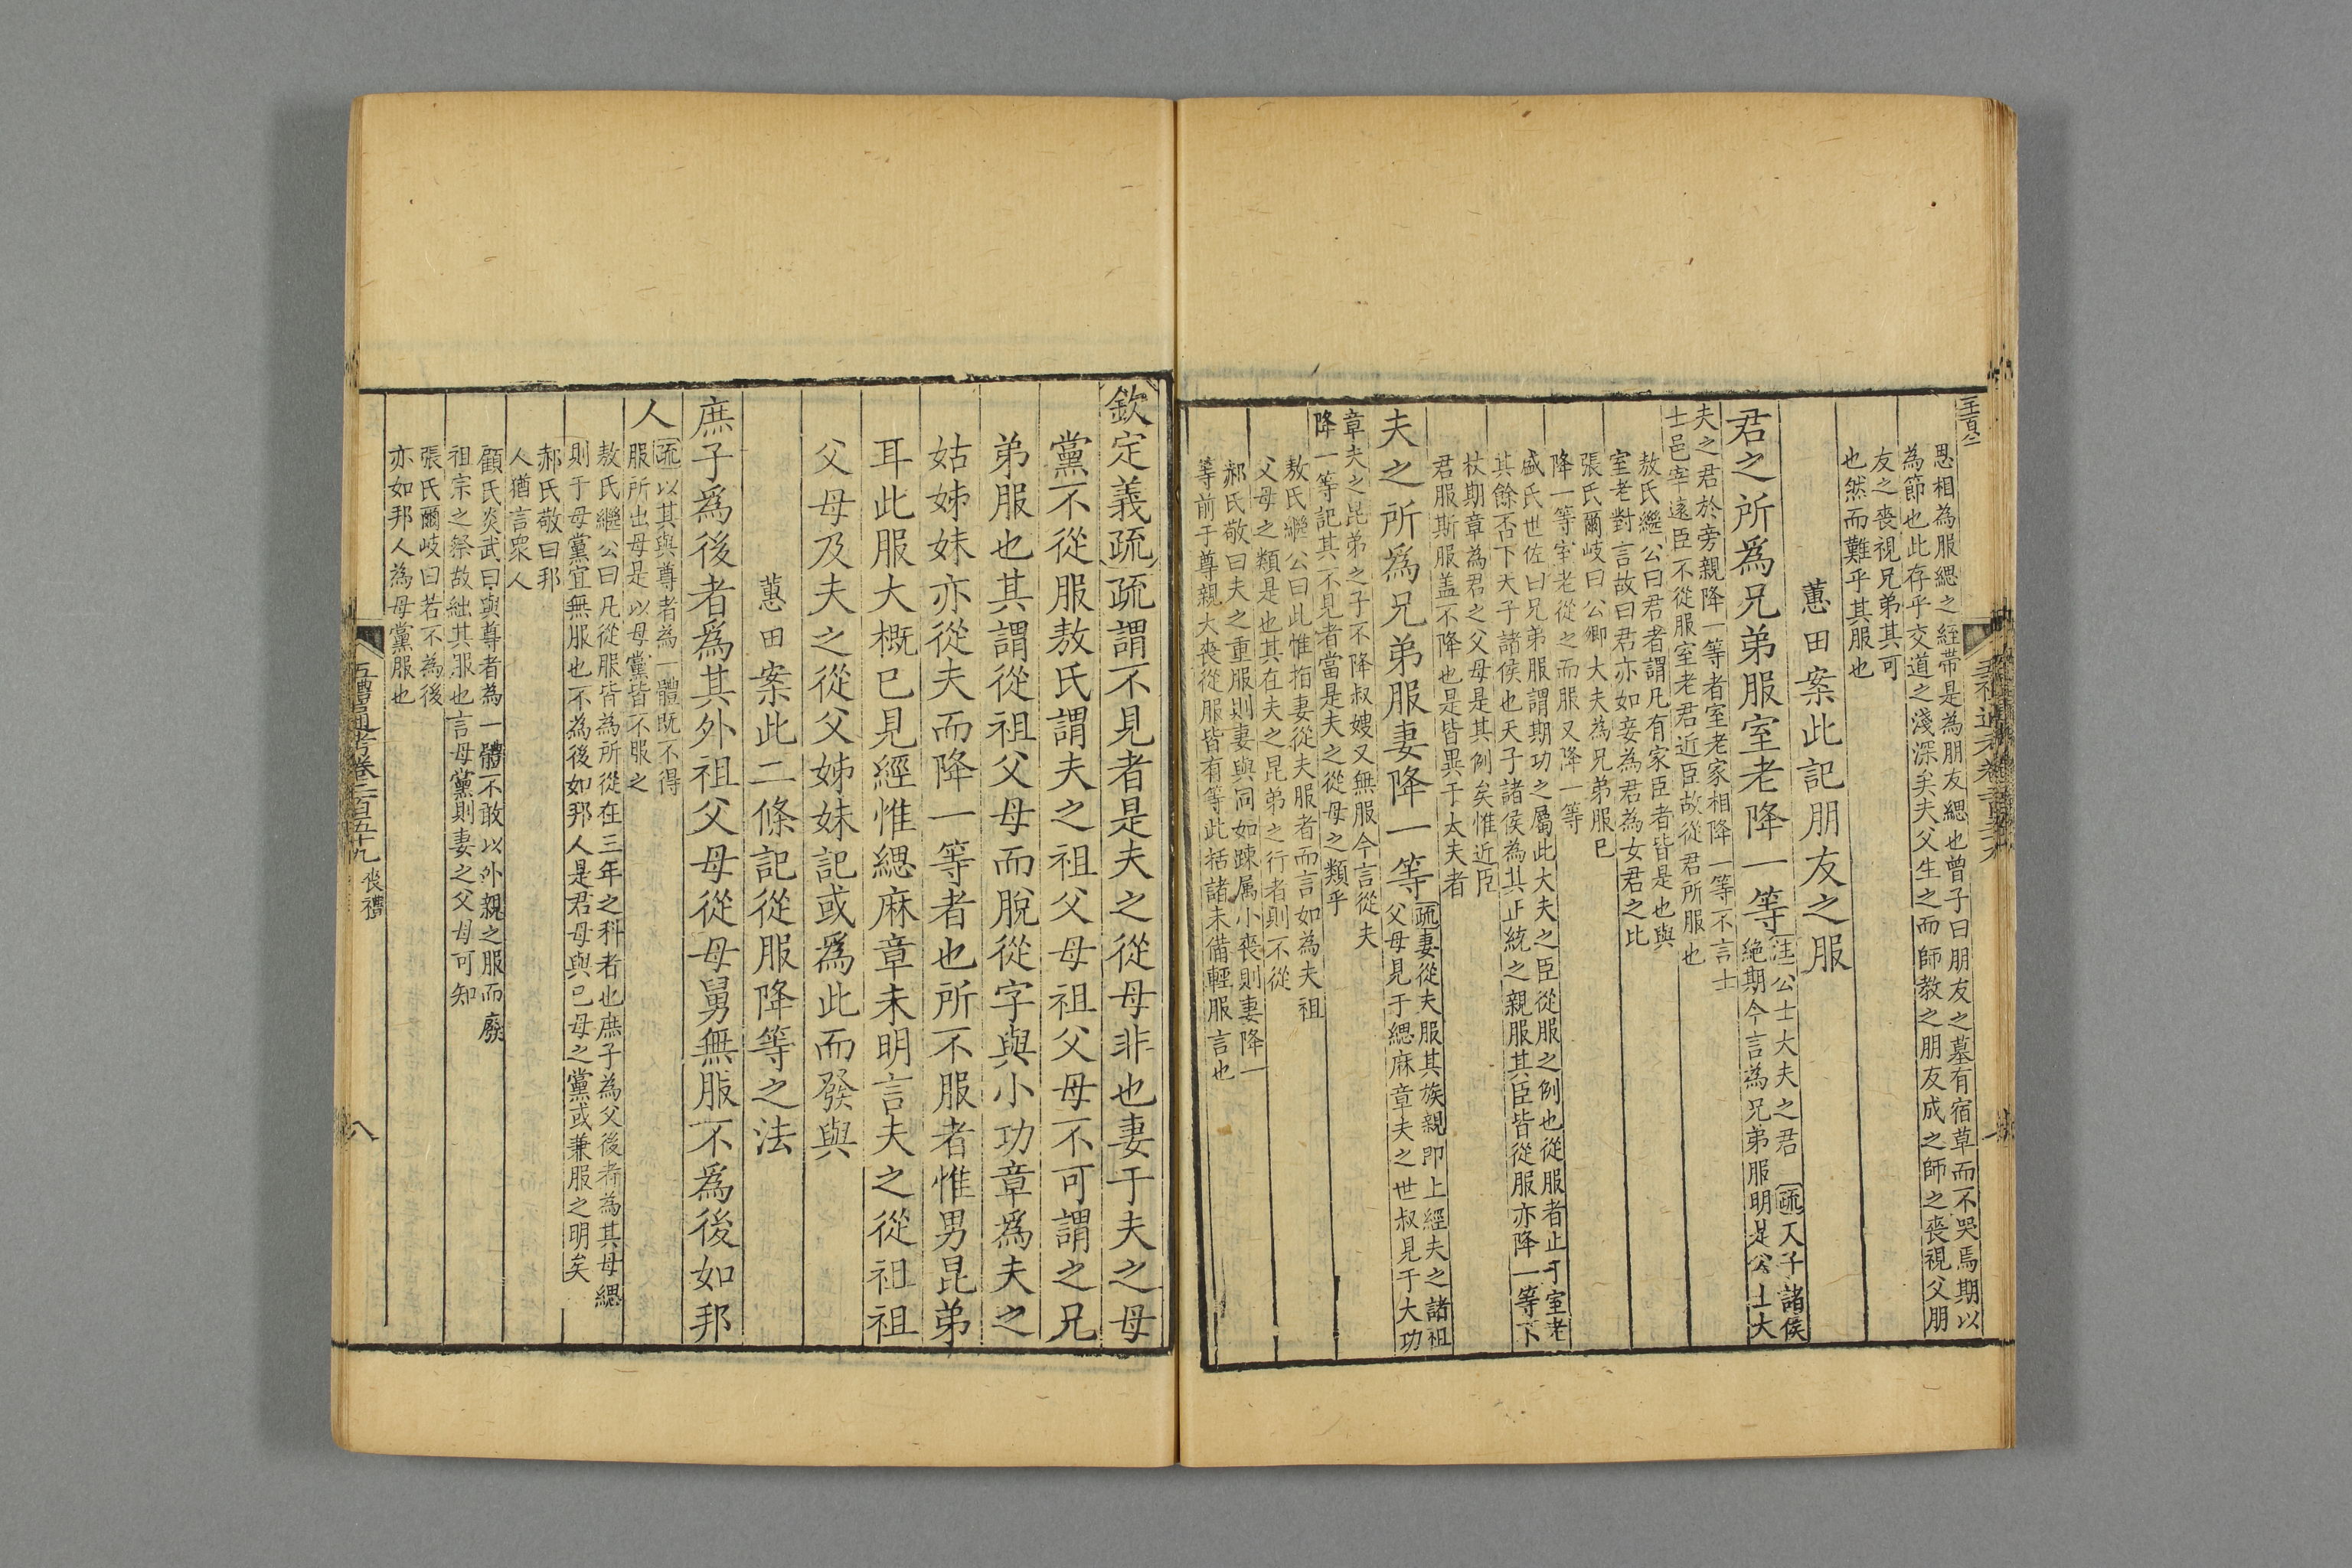 恩相為服緦之絰帶是為朋友緦也曾子曰朋友之墓有宿草而不哭焉期以
為節也此存乎交道之淺深矣夫父生之而師教之朋友成之師之喪視父朋
友之喪視兄弟其可
也然而難乎其服也
蕙田案此記朋友之服
君之所爲兄弟服室老降一等
注公士大夫之君
疏天子諸侯
絶期今言為兄弟服明是公士大
夫之君於旁親降一等者室老家相降一等不言士
士邑宰遠臣不從服室老君近臣故從君所服也
敖氏繼公曰君者謂凡有家臣者皆是也與
室老對言故曰君亦如妾為君為女君之比
張氏爾岐曰公卿大夫為兄弟服已
降一等室老從之而服又降一等
盛氏世佐曰兄弟服謂期功之屬此大夫之臣從服之例也從服者止于室老
其餘否下天子諸侯也天子諸侯為其正統之親服其臣皆從服亦降一等下
杖期章為君之父母是其例矣惟近臣
君服斯服盖不降也是皆異于大夫者
夫之所爲兄弟服妻降一等
疏妻從夫服其族親即上經夫之諸祖
父母見于緦麻章夫之世叔見于大功
章夫之昆弟之子不降叔嫂又無服今言從夫
降一等記其不見者當是夫之從母之類乎
敖氏繼公曰此惟指妻從夫服者而言如為夫祖
父母之類是也其在夫之昆弟之行者則不從
郝氏敬曰夫之重服則妻與同如踈属小喪則妻降一
等前于尊親大喪從服皆有等此括諸未備輕服言也
欽定義疏疏謂不見者是夫之從母非也妻于夫之母
黨不從服敖氏謂夫之祖父母祖父母不可謂之兄
弟服也其謂從祖父母而脫從字與小功章爲夫之
姑姊妹亦從夫而降一等者也所不服者惟男昆弟
耳此服大概已見經惟緦麻章未明言夫之從祖祖
父母及夫之從父姊妹記或爲此而發與
蕙田案此二條記從服降等之法
庶子爲後者爲其外祖父母從母舅無服不爲後如邦
人
疏以其與尊者為一體既不得
服所出母是以母黨皆不服之
敖氏繼公曰凡從服皆為所從在三年之科者也庶子為父後者為其母緦
則于母黨宜無服也不為後如邦人是君母與己母之黨或兼服之明矣
郝氏敬曰邦
人猶言衆人
顧氏炎武曰與尊者為一體不敢以外親之服而廢
祖宗之祭故絀其服也言母黨則妻之父母可知
張氏爾岐曰若不為後
亦如邦人為母黨服也
五禮通考卷二百五十九
喪禮
八